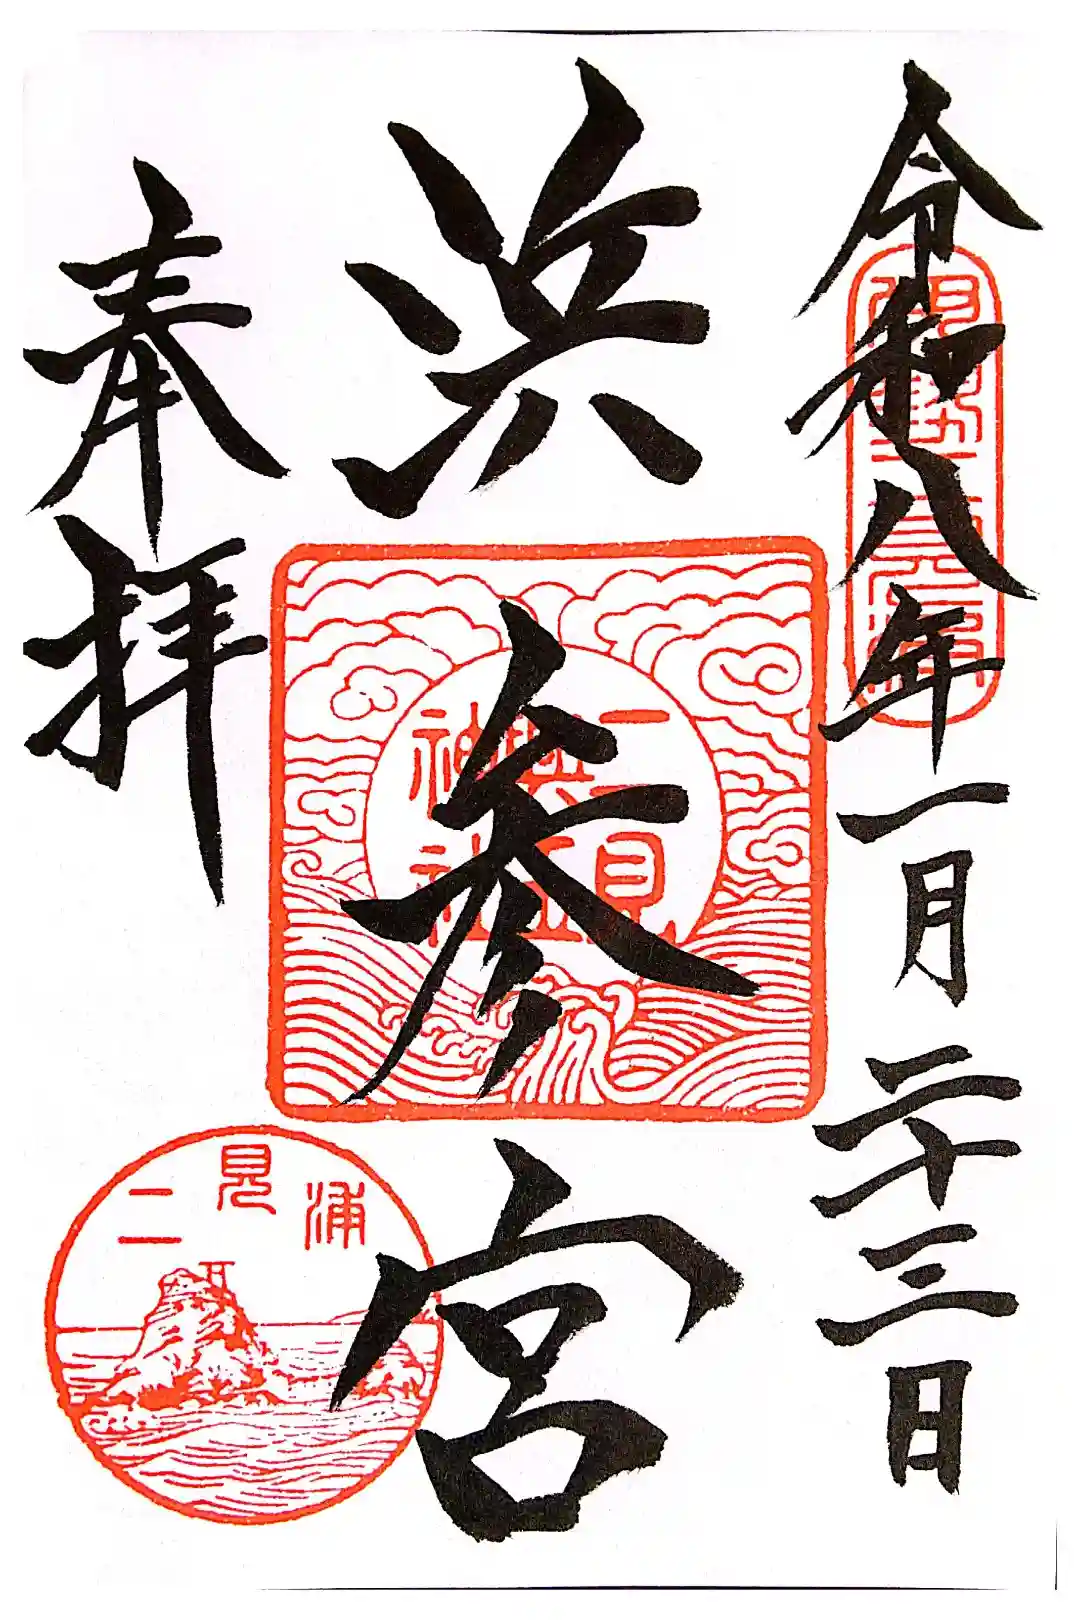 令和八年一月二十三日
浜参宮
奉拝
二見
興玉
神社
二見浦